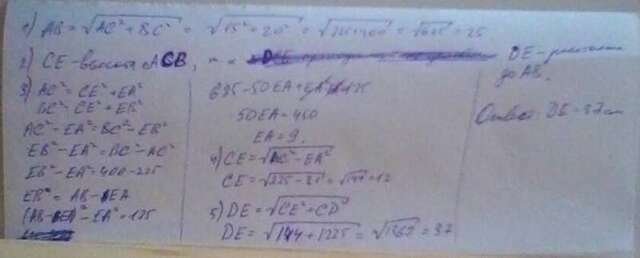 1) AB = √AC² + BC² = √15² + 20² = √225 + 400 = √625 = 25
2) CE - высота ACB, т.к
3) AC² = CE² + EA²
BC² = CE² + EB²
AC² - EA² = BC² - EB²
EB² - EA² = BC² - AC²
EB² - EA² = 400 - 225
EB = AB - EA
(AB - EA)² - EA² = 175
625 - 50EA + EA² 175
50EA = 450
EA = 9.
4) CE = √AC² - EA²
CE = √225 - 81 = √144 = 12
5) DE = √CE² + CD²
DE = √144 + 1225 = √1369 = 37
DE - расстояние
до AB.
Ответ: DE = 37 см